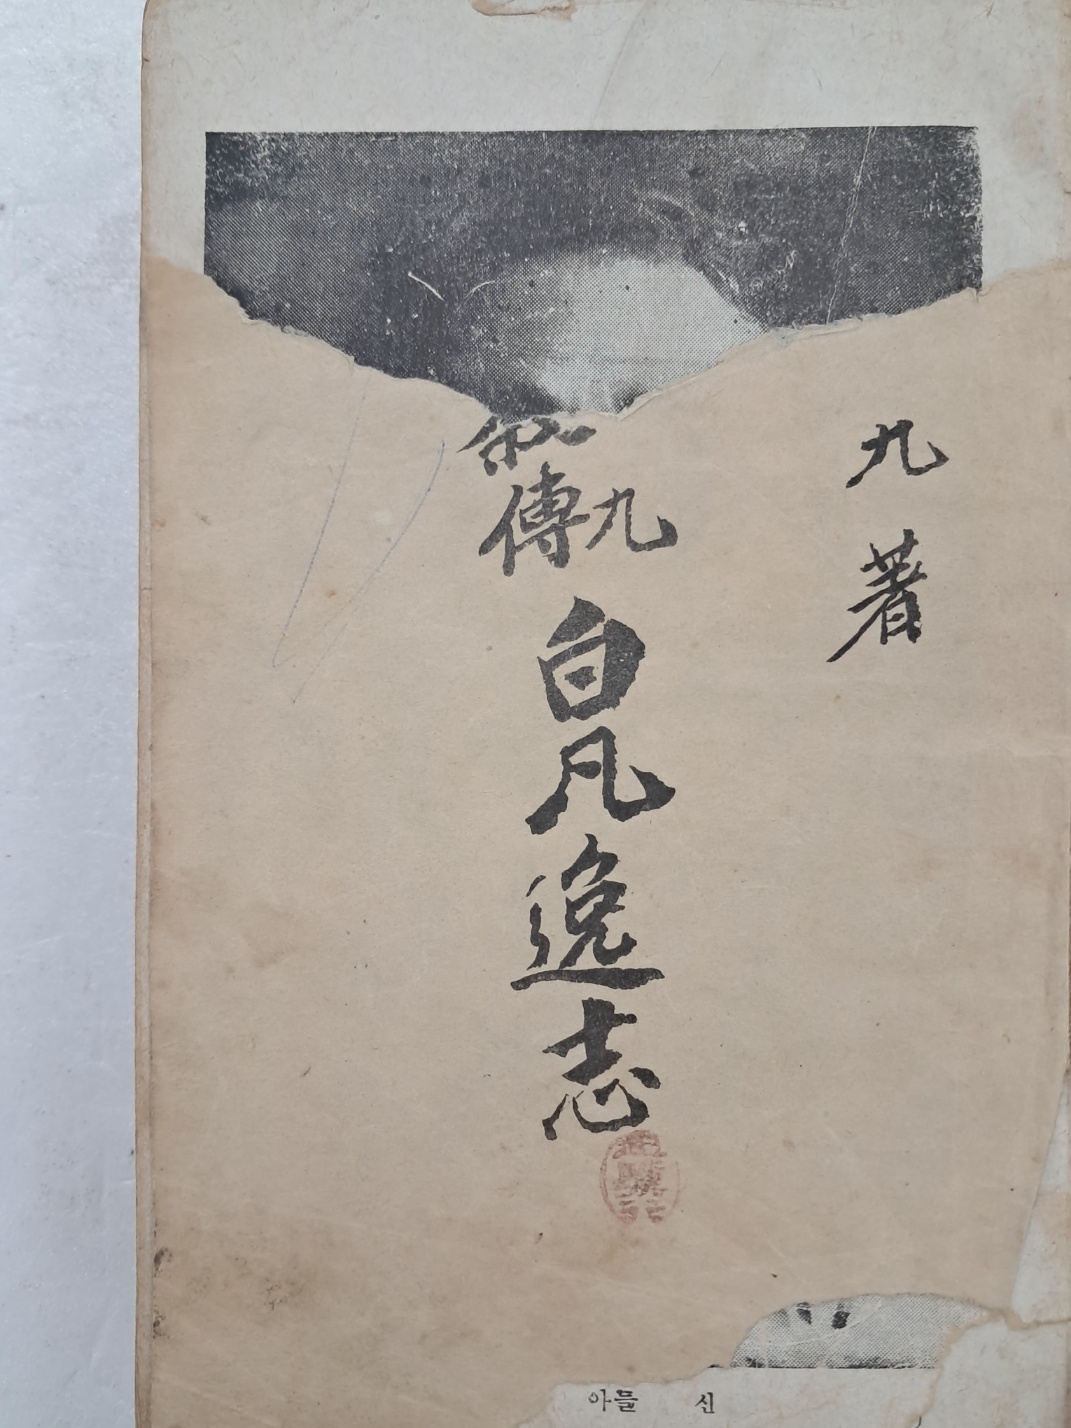 九 著
九
傳
白凡逸志
아들 신